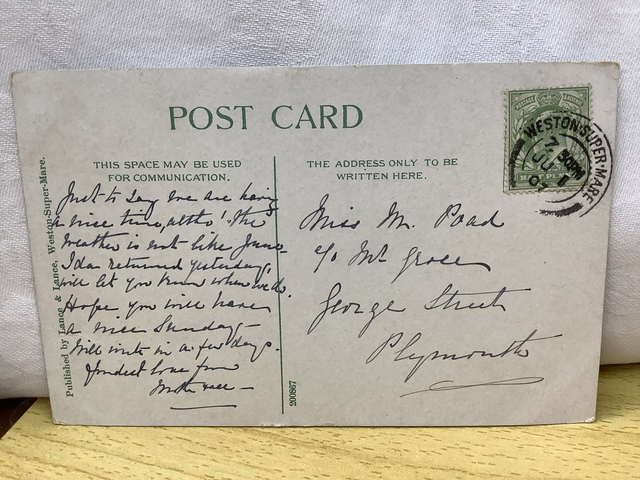 POST CARD
THIS SPACE MAY BE USED
FOR COMMUNICATION.
THE ADDRESS ONLY TO BE
WRITTEN HERE.
Just to say we are having
a nice time, altho' the
weather is not like June
Ida returned yesterday,
will let you know when we do.
Hope you will have
a nice Sunday
Will write in a few days.
fondest love from
Mother
Miss M. Poad
c/o Mr Grose
George Street
Plymouth
Published by Lance & Lance, Weston-Super-Mare.
200867
WESTON-SUPER-MARE
7
JU 1
07